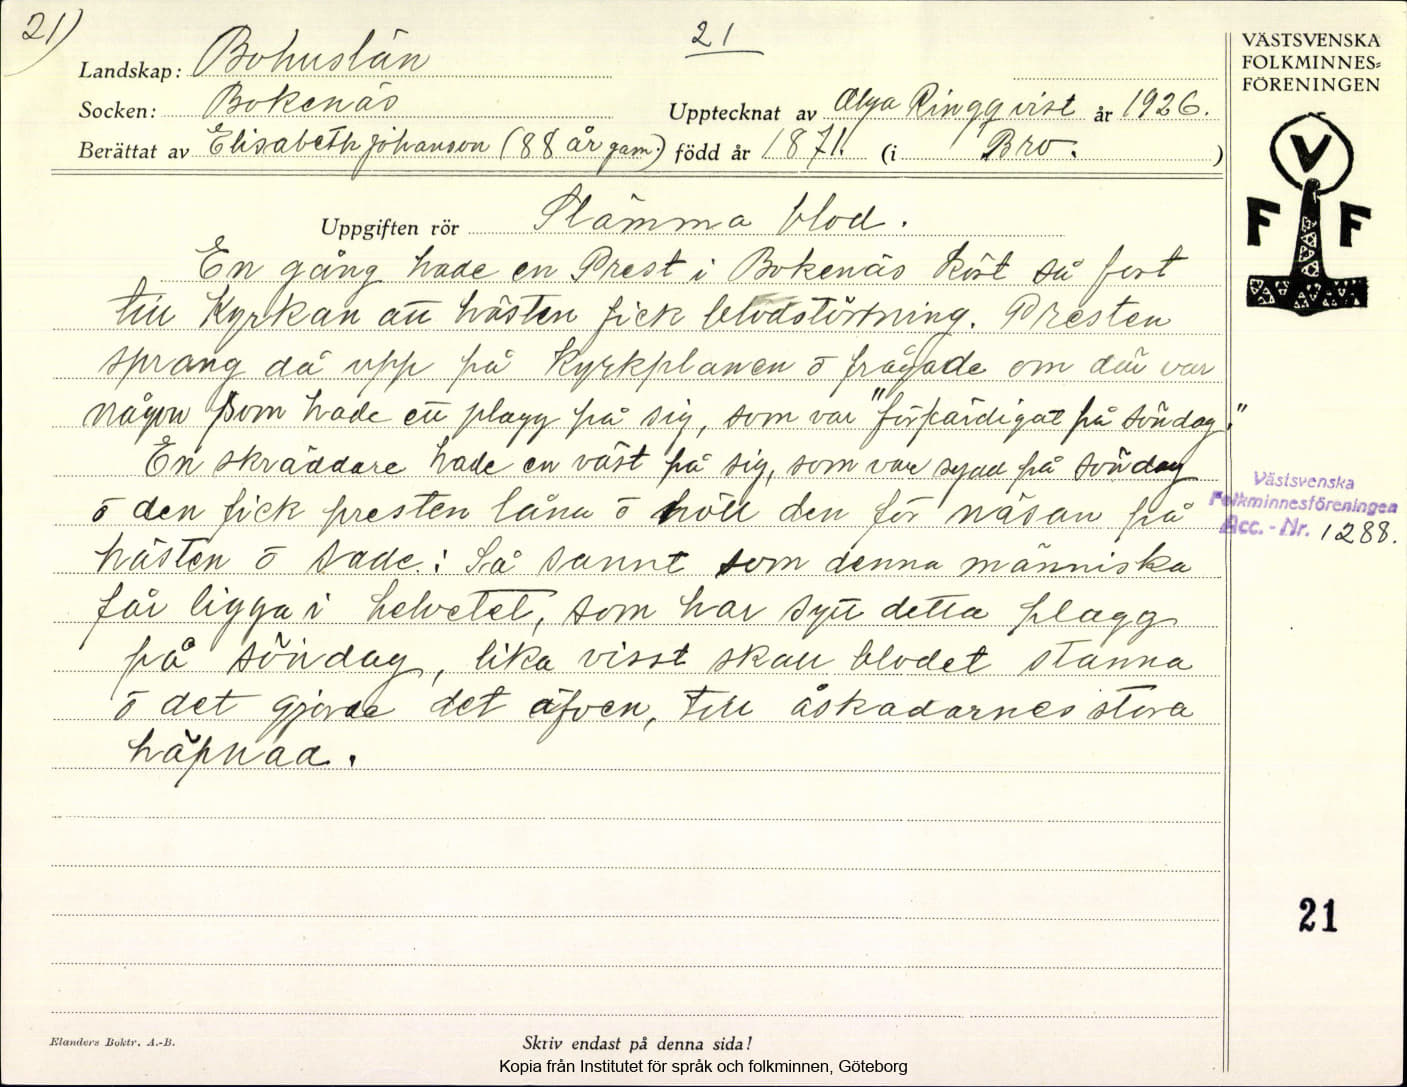 21)
21
Landskap: Bohuslän
Socken: Bokenäs
Upptecknat av Olga Ringqvist år 1926.
Berättat av Elisabeth Johanson (88 år gam.) född år 1871. (i Bro. )
Uppgiften rör Stämma blod.
En gång hade en Prest i Bokenäs kört så fort
till Kyrkan att hästen fick blodstörtning. Presten
sprang då upp på Kyrkplanen ō frågade om där var
någon som hade ett plagg på sig, som var "förfärdigat på söndag."
En skräddare hade en väst på sig, som var sydd på söndag
ō den fick presten låna ō höll den för näsan på
hästen ō sade: Så sannt som denna människa
får ligga i helvetet, som har sytt detta plagg
på söndag, lika visst skall blodet stanna
ō det gjorde det äfven, till åskadarnes stora
häpnad.
VÄSTSVENSKA
FOLKMINNES=
FÖRENINGEN
V
F F
Västsvenska
Folkminnesföreningen
Acc.-Nr. 1288.
21
Elanders Boktr. A.-B.
Skriv endast på denna sida!
Kopia från Institutet för språk och folkminnen, Göteborg